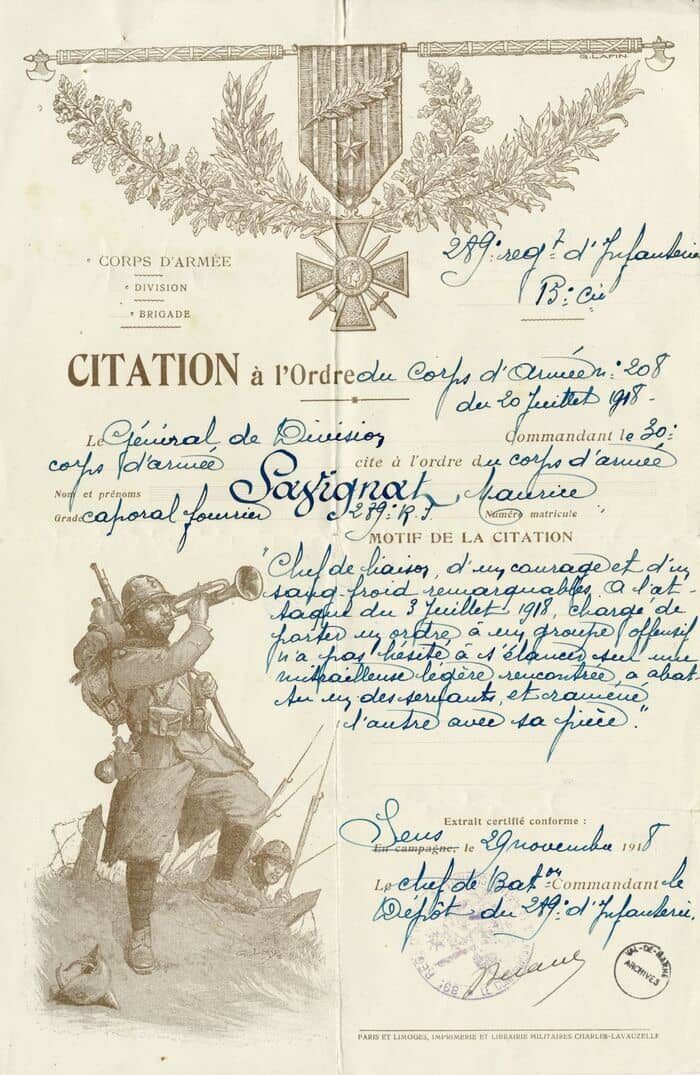 G. LAFIN
289e regt d'Infanterie
e CORPS D'ARMÉE
13e Cie
e DIVISION
e BRIGADE
CITATION à l'Ordre du Corps d'Armée n° 208
du 20 Juillet 1918-
Le Général de Division Commandant le 30e
corps d'armée cite à l'ordre du corps d'armée
Nom et prénoms Savignat Maurice
Grade caporal fourrier 289e R.I. Numéro matricule
MOTIF DE LA CITATION
"Chef de liaison, d'un courage et d'un
sang froid remarquables. A l'at-
taque du 3 Juillet 1918, chargé de
porter un ordre à un groupe offensif
n'a pas hésité à s'élancer sur une
mitrailleuse légère rencontrée, a abat-
tu un des servants, et ramené
l'autre avec sa pièce."
Extrait certifié conforme :
Sens
En campagne, le 29 novembre 1918
Le Chef de Baton Commandant le
Dépôt du 289e d'Infanterie.
VAL-DE-MARNE
ARCHIVES
PARIS ET LIMOGES, IMPRIMERIE ET LIBRAIRIE MILITAIRES CHARLES-LAVAUZELLE